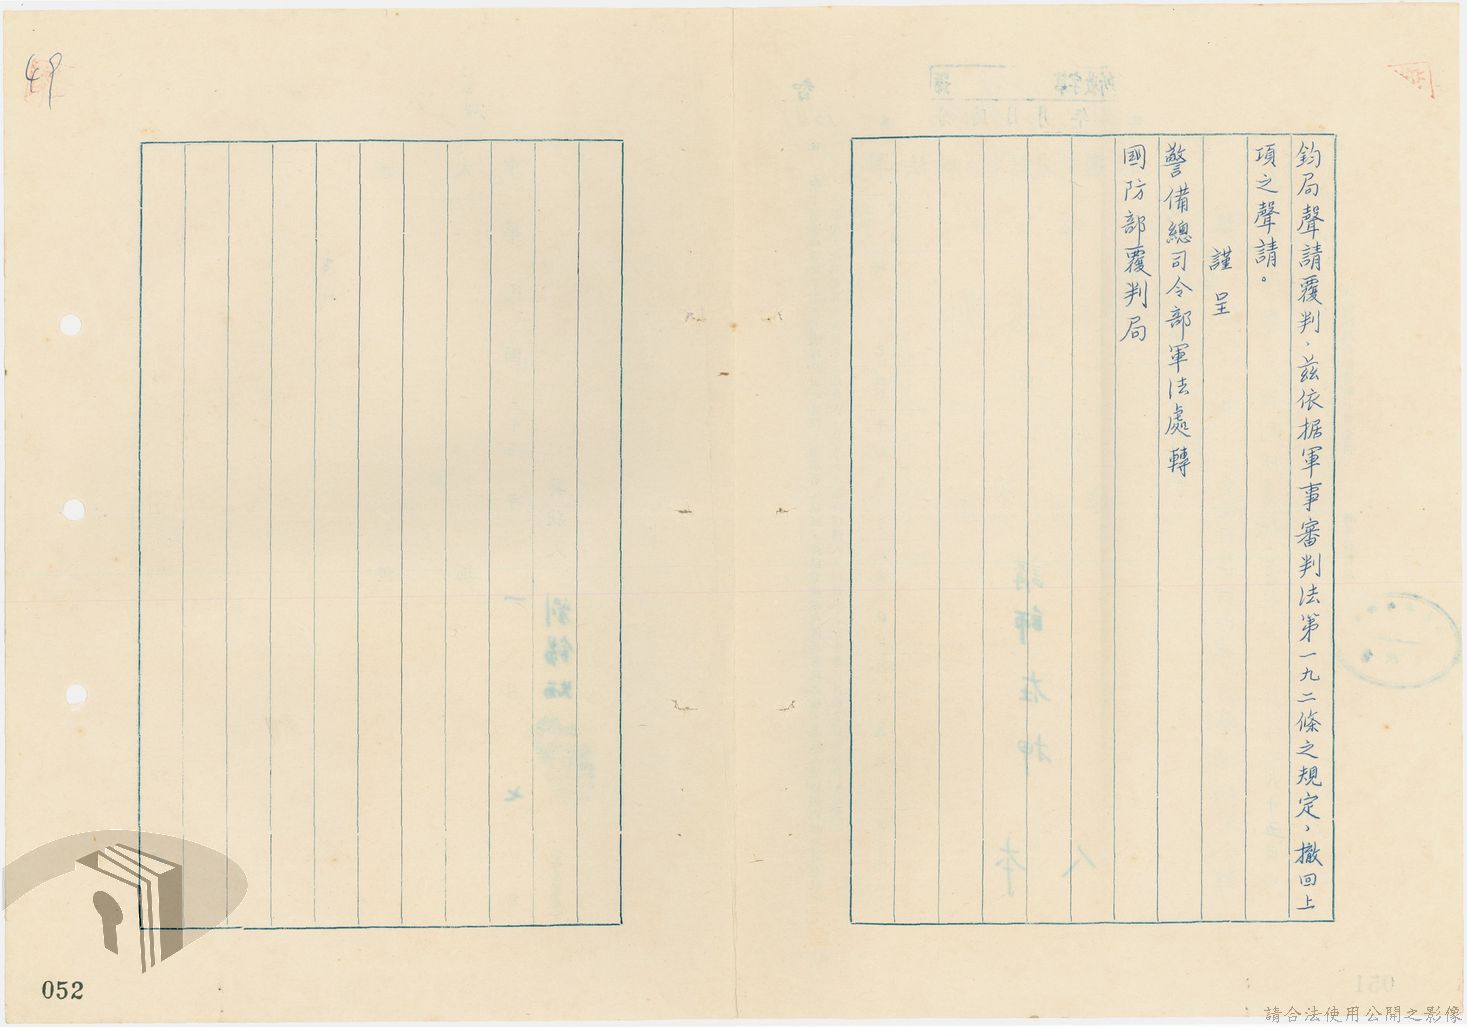 鈞局聲請覆判，茲依据軍事審判法第一九二條之規定，撤回上
項之聲請。
謹呈
警備總司令部軍法處轉
國防部覆判局
49
052
請合法使用公開之影像